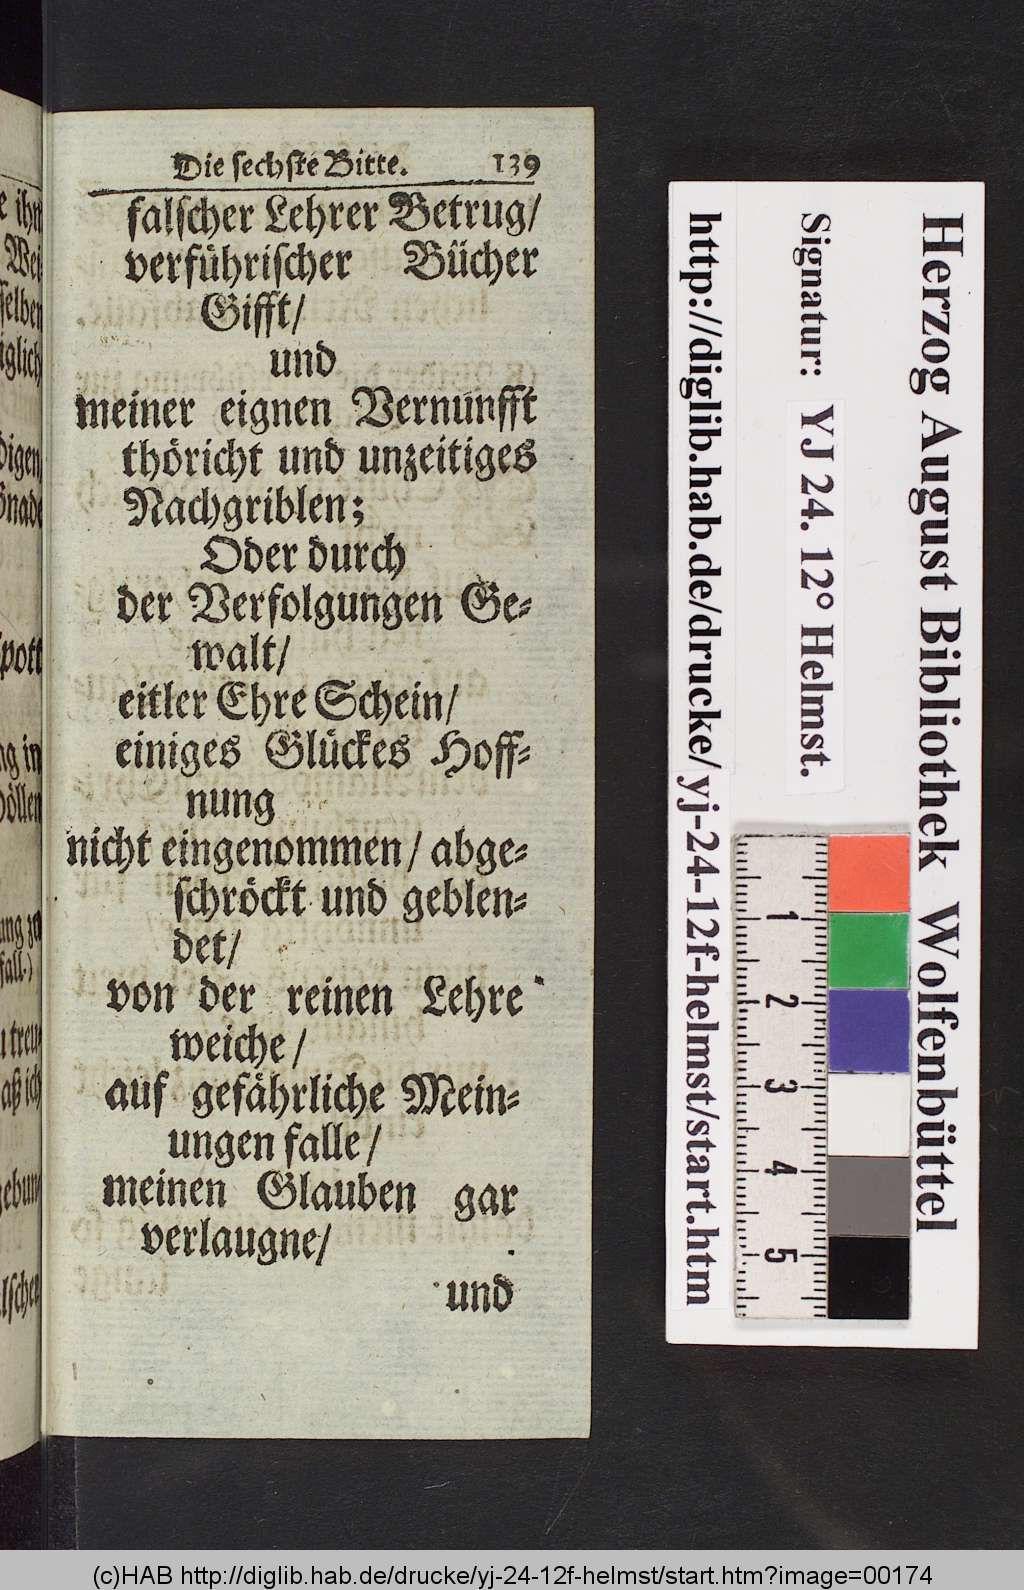 Die sechste Bitte. 139
falscher Lehrer Betrug/
verführischer Bücher
Gifft/
und
meiner eignen Vernunfft
thöricht und unzeitiges
Nachgriblen;
Oder durch
der Verfolgungen Ge-
walt/
eitler Ehre Schein/
einiges Glückes Hoff-
nung
nicht eingenommen/ abge-
schröckt und geblen-
det/
von der reinen Lehre
weiche/
auf gefährliche Mein-
ungen falle/
meinen Glauben gar
verlaugne/
und
Herzog August Bibliothek Wolfenbüttel
Signatur: YJ 24. 12° Helmst.
http://diglib.hab.de/drucke/yj-24-12f-helmst/start.htm
1
2
3
4
5
(c)HAB http://diglib.hab.de/drucke/yj-24-12f-helmst/start.htm?image=00174